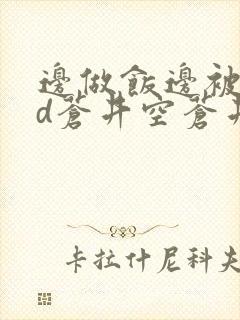 邊做飯邊被
d蒼井空蒼井
卡拉什尼科夫